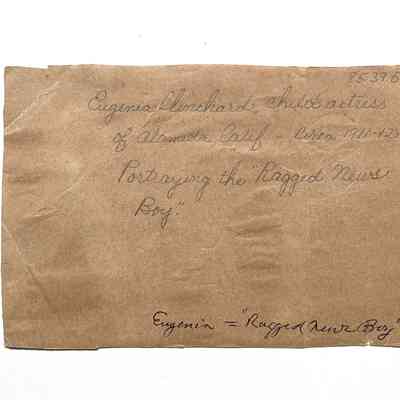 85396
Eugenia Blenchard, child actress
of Alameda, Calif - Circa 1911-12
Portraying the "Ragged News
Boy."
Eugenia = "Ragged News Boy"